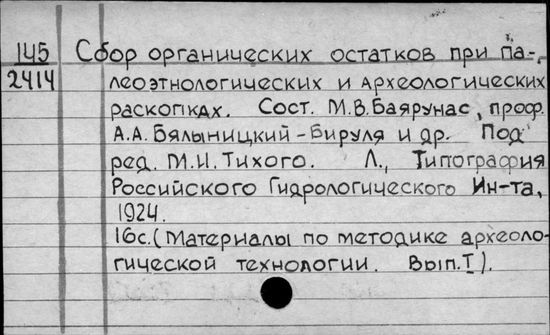 145
2414
Сбор органических остатков при па-
леоэтнологических и археологических
раскопках. Сост. М.В. Баярунас, проф.
А.А. Бялыницкий-Бируля и др. Под
ред. М.И. Тихого. Л., Типография
Российского Гидрологического Ин-та,
1924.
16с. (Материалы по методике археоло-
гической технологии. Вып. I).